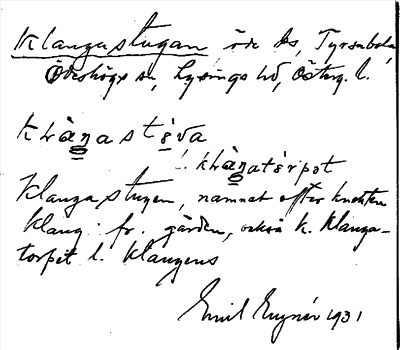 Klangastugan, öde hs, Tyrsabola
Ödeshögs sn, Lysings hd, Östg. l.
klàŋastɵva
klàŋatɵrpət
Klangastugan, namnet efter knekten
Klang fr. gården, också k. Klanga-
torpet l. Klangens
Emil 1931